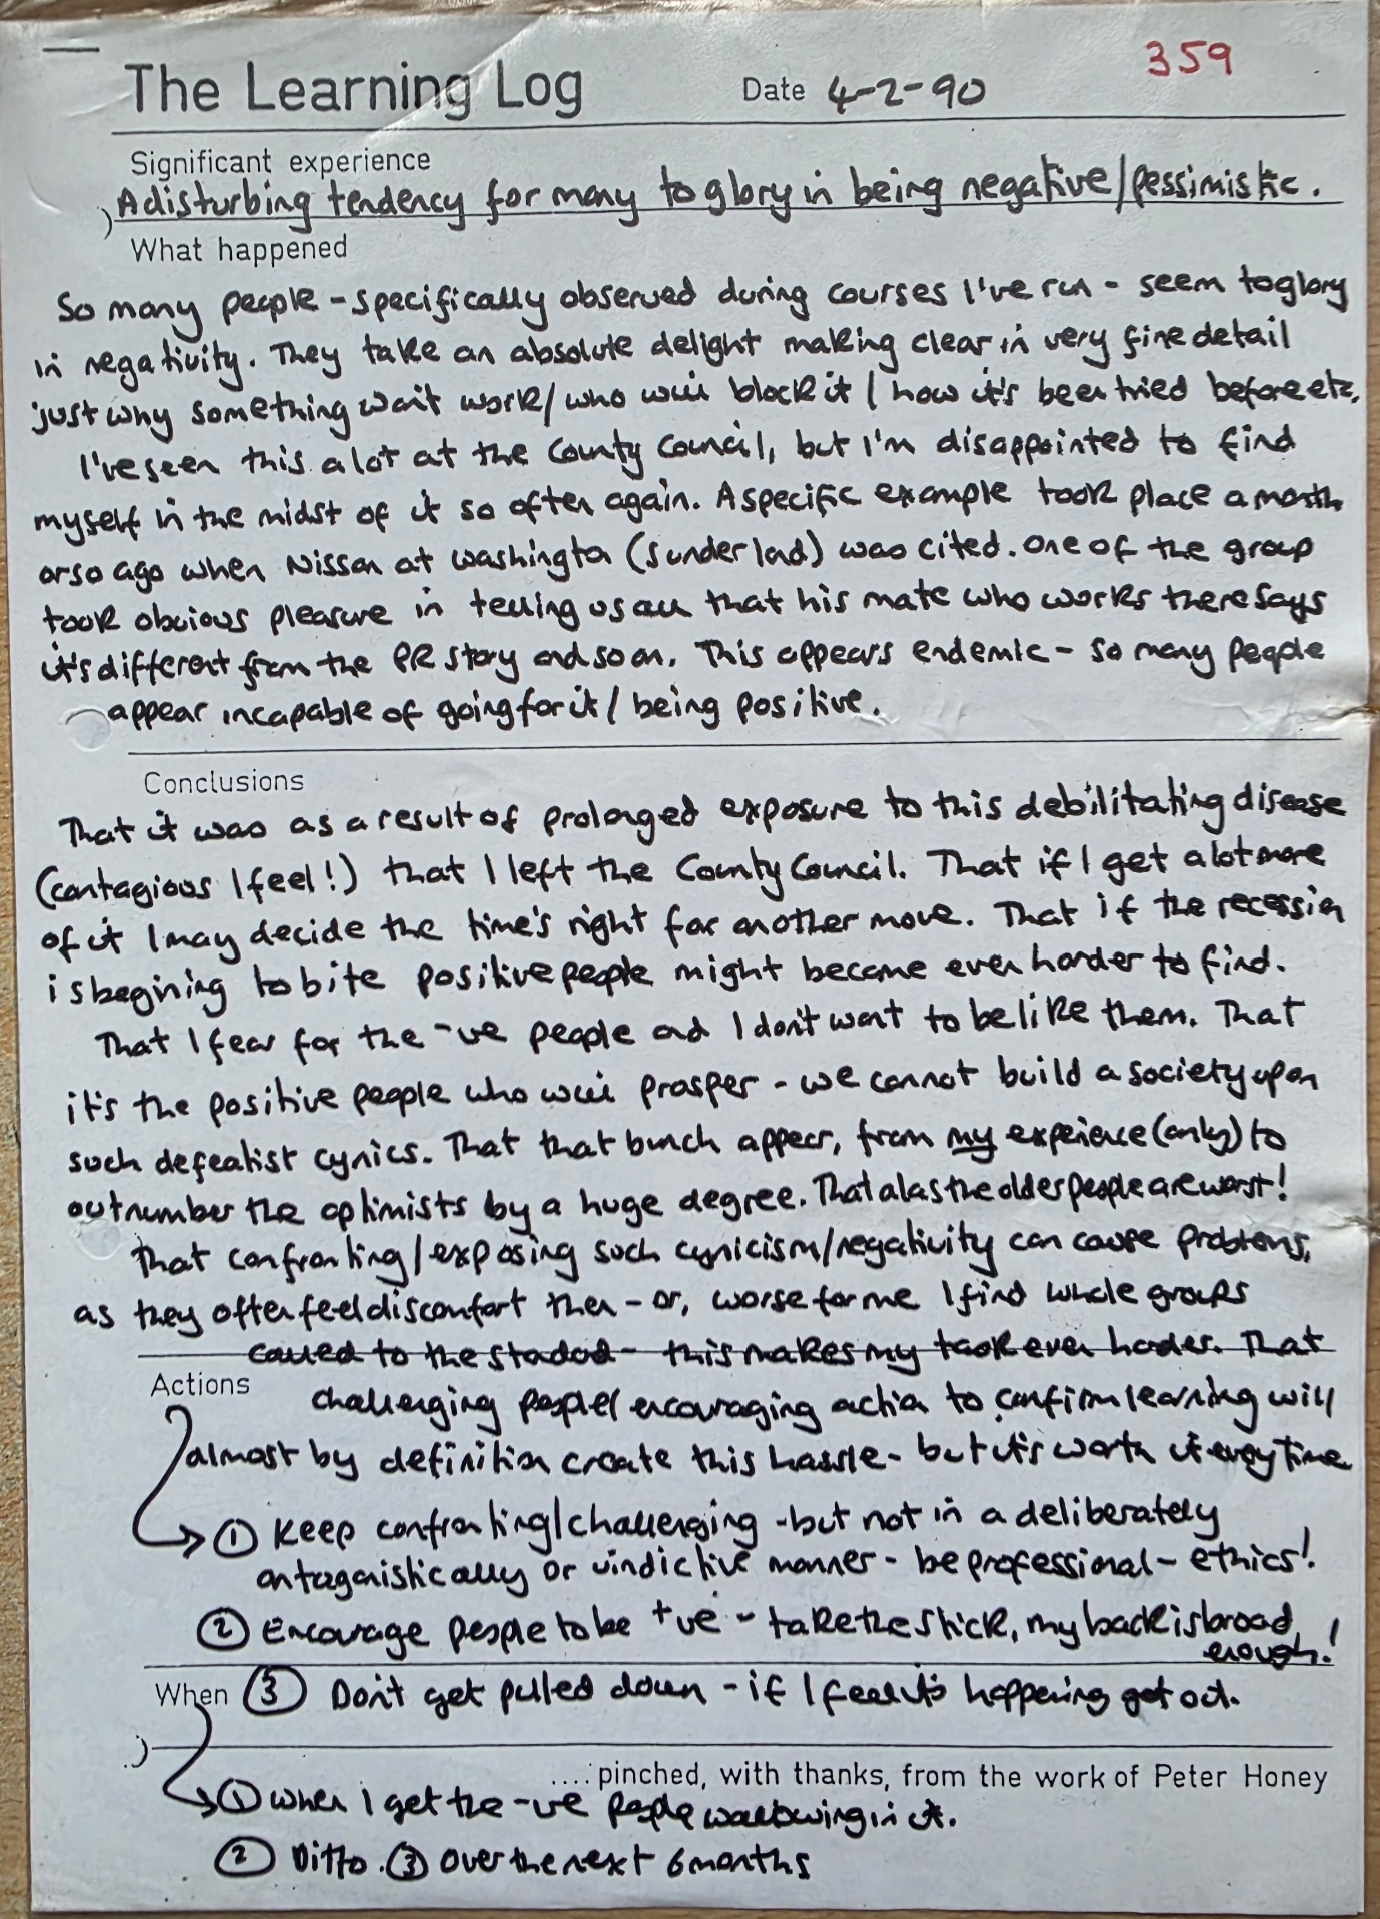 359
The Learning Log Date 4-2-90
Significant experience
A disturbing tendency for many to glory in being negative/pessimistic.
What happened
So many people - specifically observed during courses I've run - seem to glory
in negativity. They take an absolute delight making clear in very fine detail
just why something won't work/who will block it/how it's been tried before etc.
I've seen this a lot at the County Council, but I'm disappointed to find
myself in the midst of it so often again. A specific example took place a month
or so ago when Nissan at Washington (Sunderland) was cited. One of the group
took obvious pleasure in telling us all that his mate who works there says
it's different from the PR story and so on. This appears endemic - so many people
appear incapable of going for it/being positive.
Conclusions
That it was as a result of prolonged exposure to this debilitating disease
(contagious I feel!) that I left the County Council. That if I get a lot more
of it I may decide the time's right for another move. That if the recession
is begining to bite positive people might become even harder to find.
That I fear for the -ve people and I don't want to be like them. That
it's the positive people who will prosper - we cannot build a society upon
such defeatist cynics. That that bunch appear, from my experience (only) to
outnumber the optimists by a huge degree. That alas the older people are worst!
That confronting/exposing such cynicism/negativity can cause problems,
as they often feel discomfort then - or, worse for me I find whole groups
to the - this makes my task even harder. That
Actions
challenging people/encouraging action to confirm learning will
almost by definition create this hassle - but it's worth it every time
① Keep confronting/challenging - but not in a deliberately
antagonistically or vindictive manner - be professional - ethics!
② Encourage people to be +ve - take the stick, my back is broad
enough!
When ③ Don't get pulled down - if I feel it's happening get out.
....pinched, with thanks, from the work of Peter Honey
① When I get the -ve people wallowing in it.
② Ditto. ③ Over the next 6 months